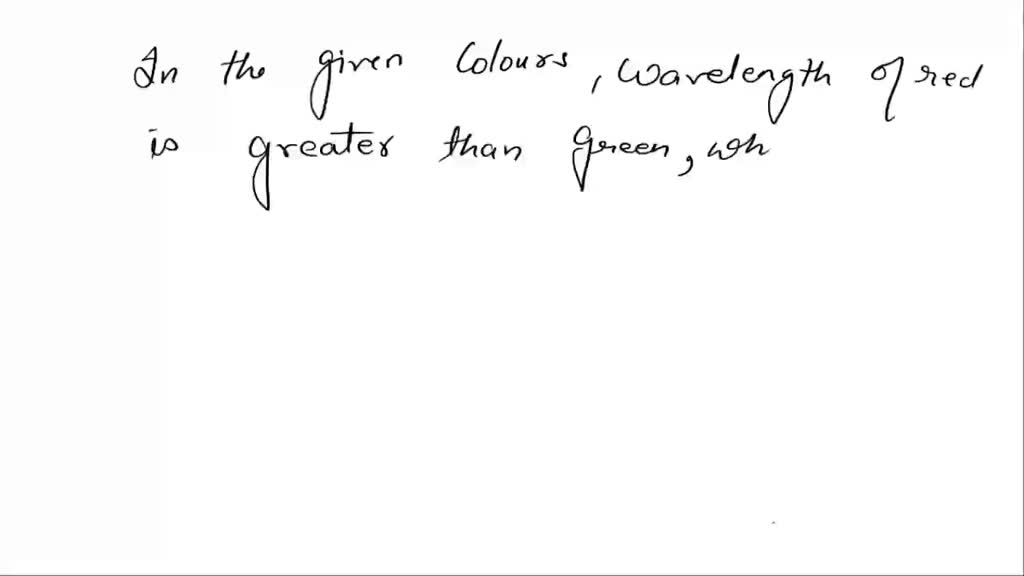 In the given Colours, wavelength of red
is greater than green, wh